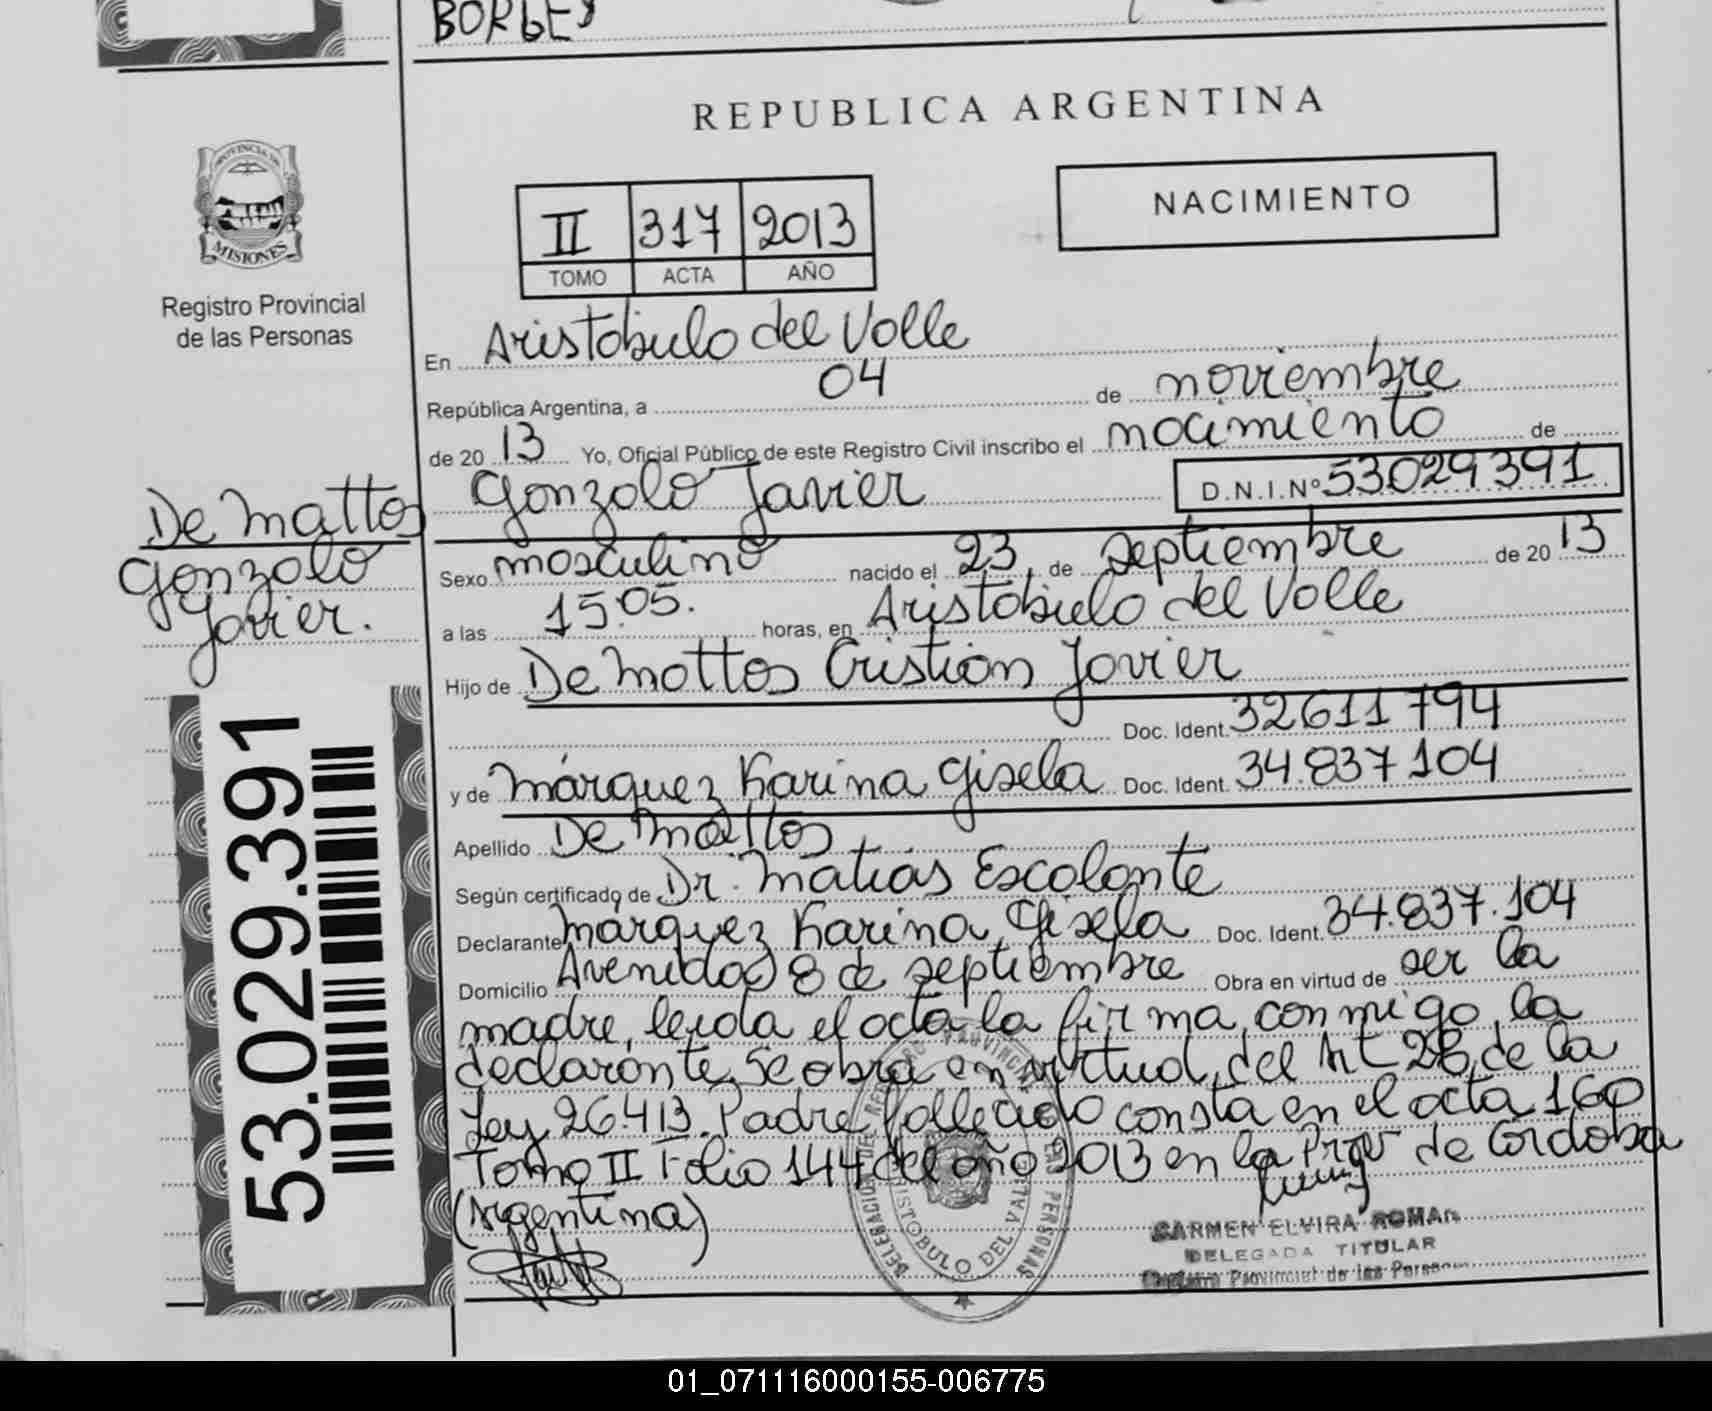 BORGES
REPUBLICA ARGENTINA
NACIMIENTO
II 317 2013
TOMO ACTA AÑO
PROVINCIA DE
MISIONES
Registro Provincial
de las Personas
En Aristobulo del Valle
República Argentina, a 04 de noviembre
de 20 13 Yo, Oficial Público de este Registro Civil inscribo el nacimiento de
Gonzalo Javier D.N.I.Nº 53029391
De Mattos
Gonzalo
Javier.
Sexo masculino nacido el 23 de septiembre de 20 13
a las 15:05. horas, en Aristobulo del Valle
Hijo de De Mattos Cristian Javier
Doc. Ident. 32611794
y de Márquez Karina Gisela Doc. Ident. 34.837104
Apellido De Mattos
Según certificado de Dr. Matias Escalante
Declarante Márquez Karina Gisela Doc. Ident. 34.837.104
Domicilio Avenida 8 de septiembre Obra en virtud de ser la
madre, leida el acta la firma conmigo la
declarante, Se obra en virtud del Art 28 de la
Ley 26.413. Padre fallecido consta en el acta 160
Tomo II Folio 144 del año 2013 en la Prov de Córdoba
(Argentina)
53.029.391
DELEGACION DEL REGISTRO PROVINCIAL DE LAS PERSONAS
ARISTOBULO DEL VALLE
CARMEN ELVIRA ROMAN
DELEGADA TITULAR
Provincial de las Personas
01_071116000155-006775